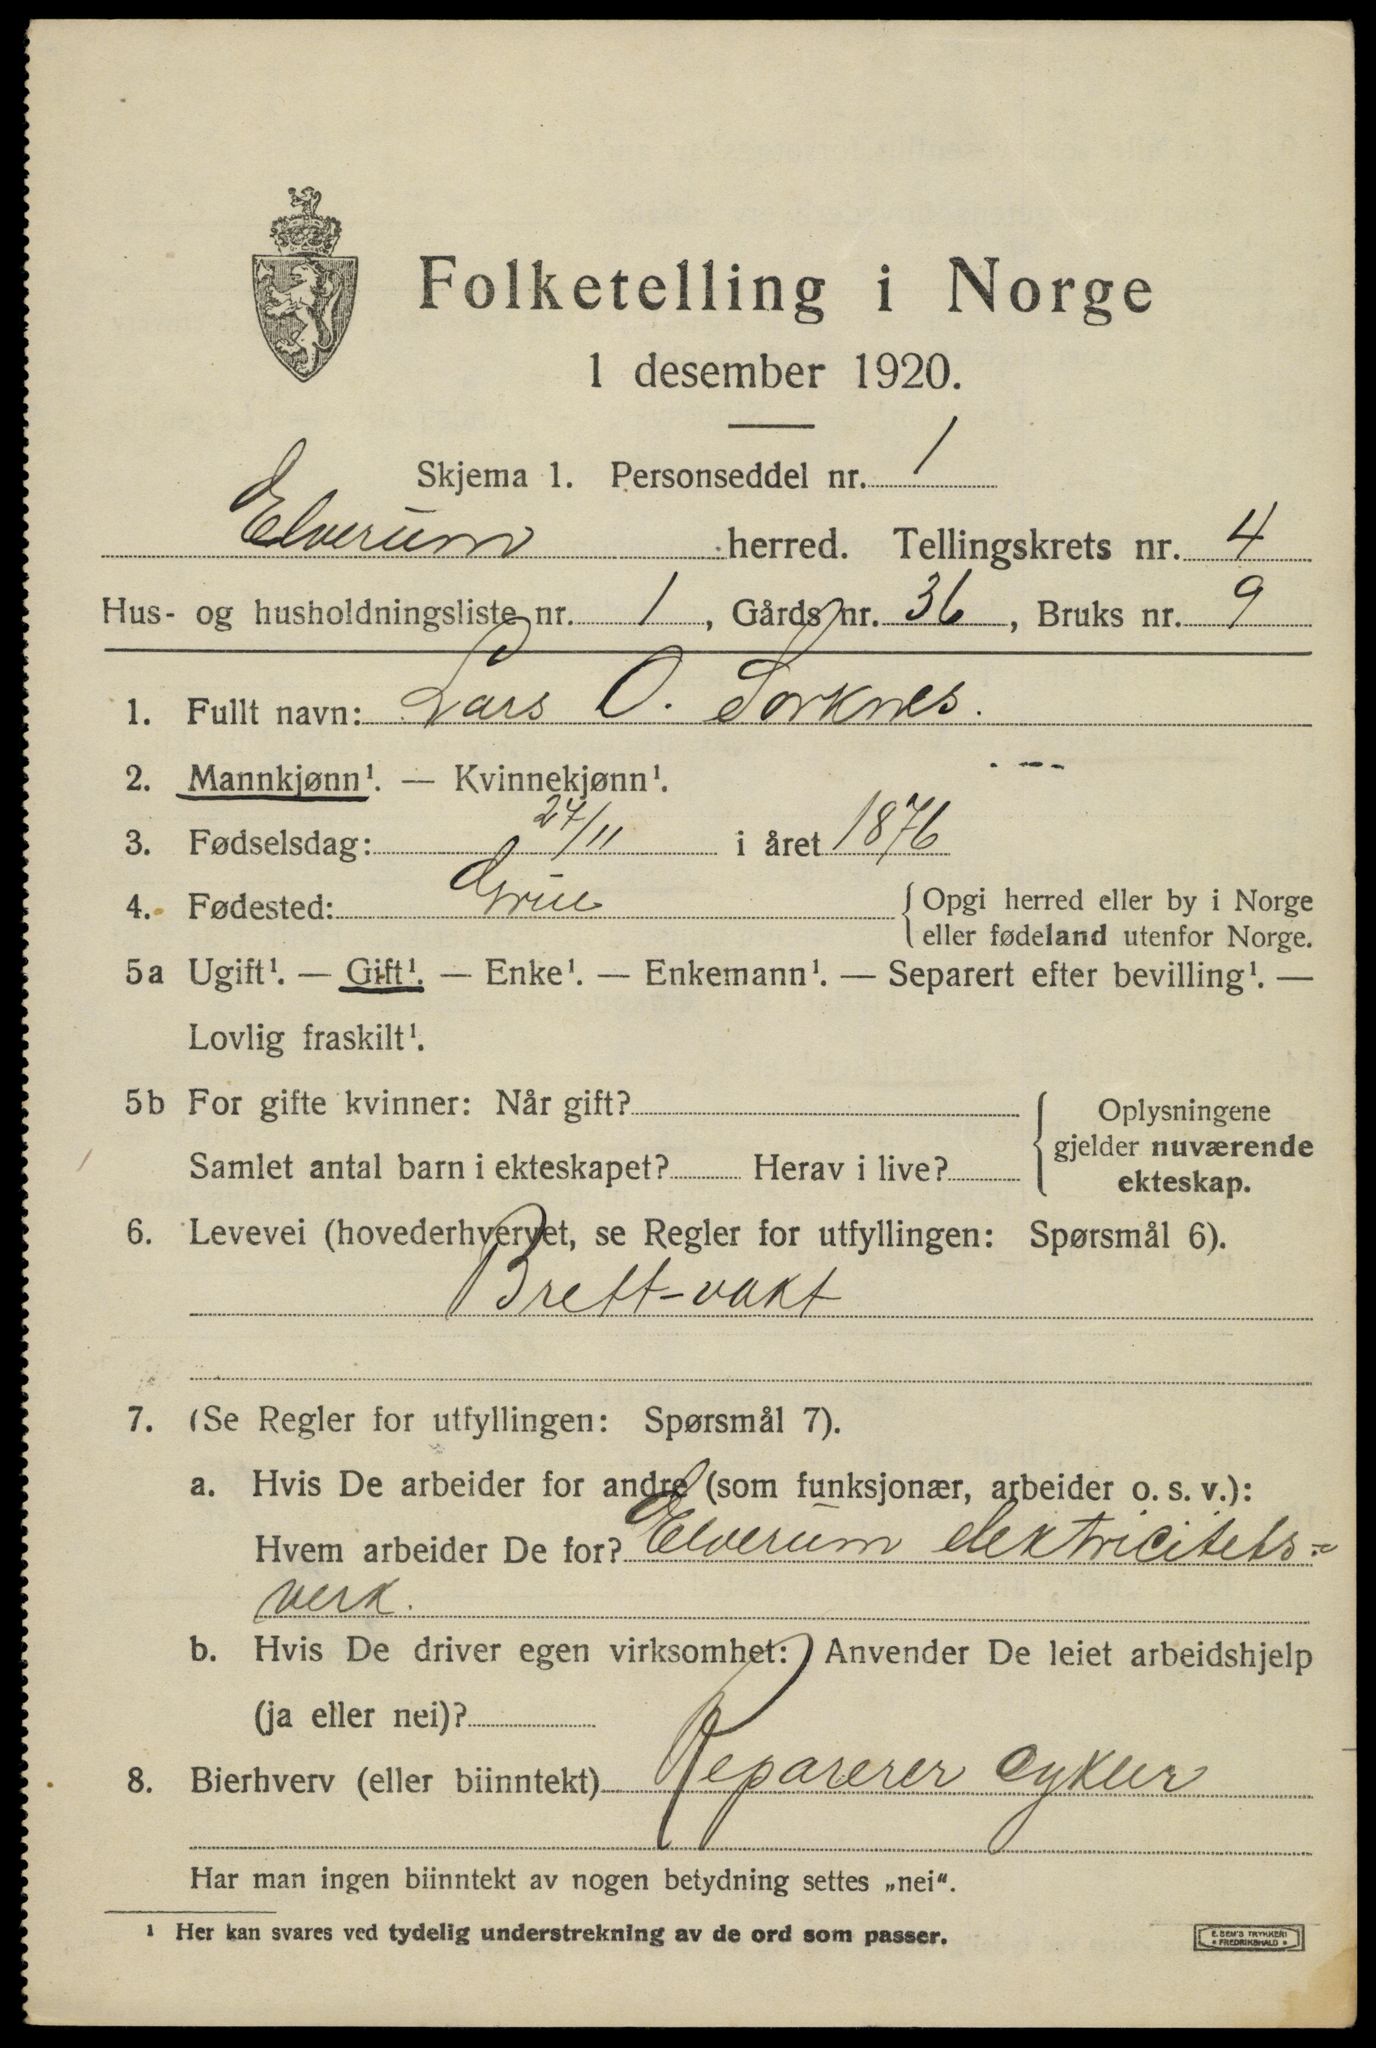 Folketelling i Norge
1 desember 1920.
Skjema 1. Personseddel nr. 1
Elverum herred. Tellingskrets nr. 4
Hus- og husholdningsliste nr. 1, Gårds nr. 36, Bruks nr. 9
1. Fullt navn: Lars O. Sorknes.
2. Mannkjønn¹. — Kvinnekjønn¹.
3. Fødselsdag: 24/11 i året 1876
4. Fødested: Grue { Opgi herred eller by i Norge
eller fødeland utenfor Norge.
5a Ugift¹. — Gift¹. — Enke¹. — Enkemann¹. — Separert efter bevilling¹. —
Lovlig fraskilt¹.
5b For gifte kvinner: Når gift?
Samlet antal barn i ekteskapet? Herav i live?
{ Oplysningene
gjelder nuværende
ekteskap.
6. Levevei (hovederhvervet, se Regler for utfyllingen: Spørsmål 6).
Brett-vakt
7. (Se Regler for utfyllingen: Spørsmål 7).
a. Hvis De arbeider for andre (som funksjonær, arbeider o. s. v.):
Hvem arbeider De for? Elverum elektricitets-
verk.
b. Hvis De driver egen virksomhet: Anvender De leiet arbeidshjelp
(ja eller nei)?
8. Bierhverv (eller biinntekt) Reparerer cykler
Har man ingen biinntekt av nogen betydning settes „nei".
¹ Her kan svares ved tydelig understrekning av de ord som passer.
E. SEM'S TRYKKERI
• FREDRIKSHALD •